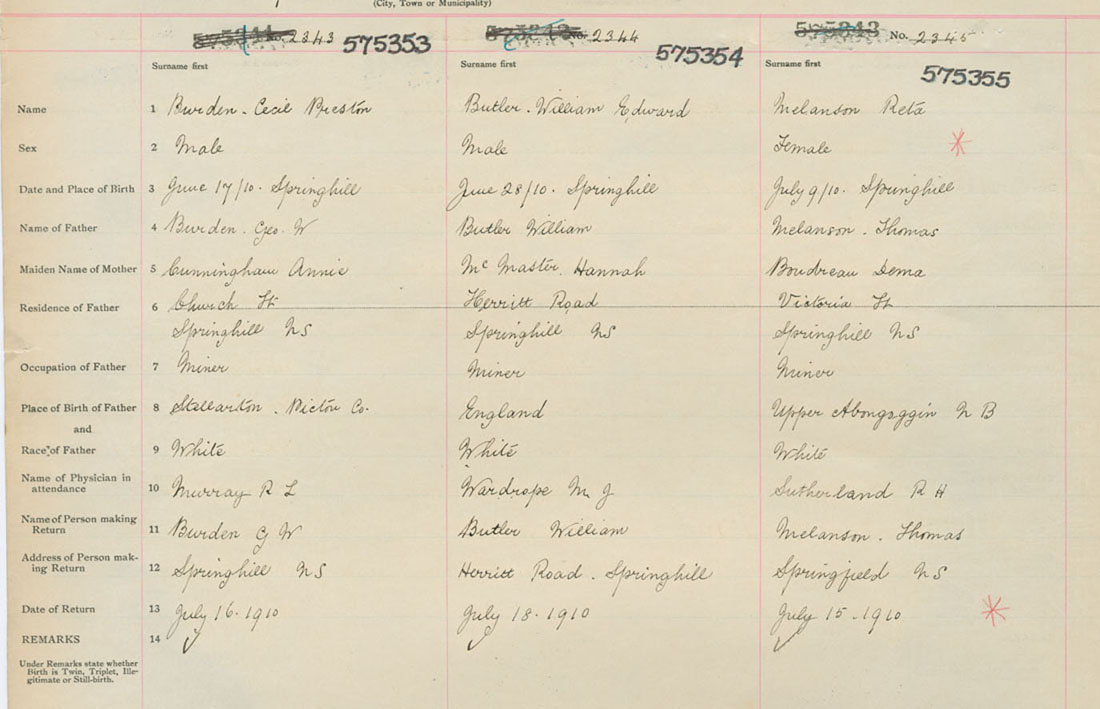 (City, Town or Municipality)
No. 2343 575353
No. 2344 575354
No. 2345 575355
Surname first Surname first Surname first
Name 1 Burden. Cecil Preston Butler. William Edward Melanson Reta
Sex 2 Male Male Female
Date and Place of Birth 3 June 17/10. Springhill June 28/10. Springhill July 9/10. Springhill
Name of Father 4 Burden. Geo. W Butler William Melanson. Thomas
Maiden Name of Mother 5 Cunningham Annie McMaster. Hannah Boudreau Dema
Residence of Father 6 Church St Herritt Road Victoria St
Springhill NS Springhill NS Springhill NS
Occupation of Father 7 Miner Miner Miner
Place of Birth of Father 8 Stellarton. Pictou Co. England Upper Abougoggin N B
and
Race of Father 9 White White White
Name of Physician in
attendance 10 Murray R L Wardrope M J Sutherland R H
Name of Person making
Return 11 Burden G W Butler William Melanson. Thomas
Address of Person mak-
ing Return 12 Springhill NS Herritt Road. Springhill Springfield NS
Date of Return 13 July 16. 1910 July 18. 1910 July 15. 1910
REMARKS 14
Under Remarks state whether
Birth is Twin, Triplet, Ille-
gitimate or Still-birth.